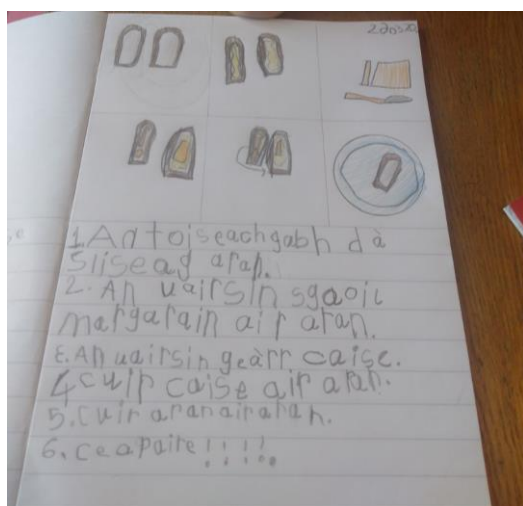 1. An toiseach gabh dà
sliseag aran.
2. An uairsin sgaoil
margarain air aran.
3. An uairsin geàrr caise.
4 cuir caise air aran.
5. Cuir aran air aran.
6. Ceapaire !!!!